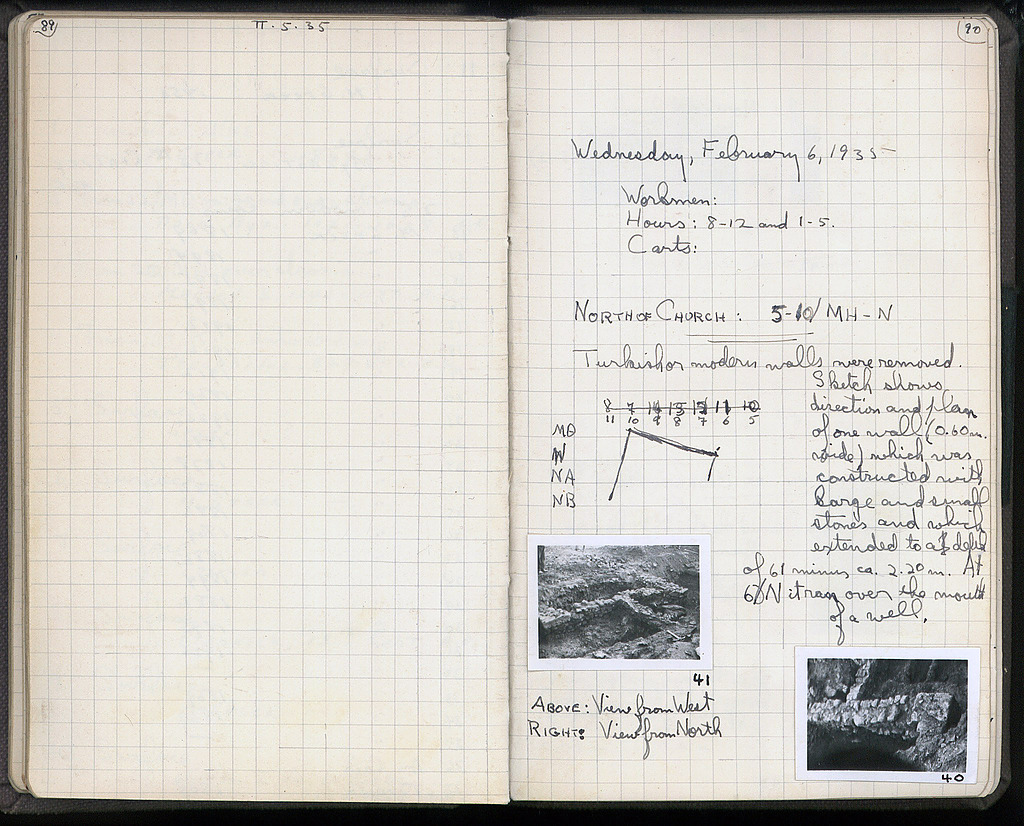 89
II.5.35
90
Wednesday, February 6, 1935
Workmen:
Hours: 8-12 and 1-5.
Carts:
NORTH OF CHURCH: 5-10/MH-N
Turkish or modern walls were removed.
Sketch shows
direction and plan
of one wall (0.60 m.
wide) which was
constructed with
large and small
stones and which
extended to a
of 61 minus ca. 2.20 m. At
6/N it ran over the mouth
of a well.
11 10 9 8 7 6 5
MD
N
NA
NB
41
ABOVE: View from West
RIGHT: View from North
40